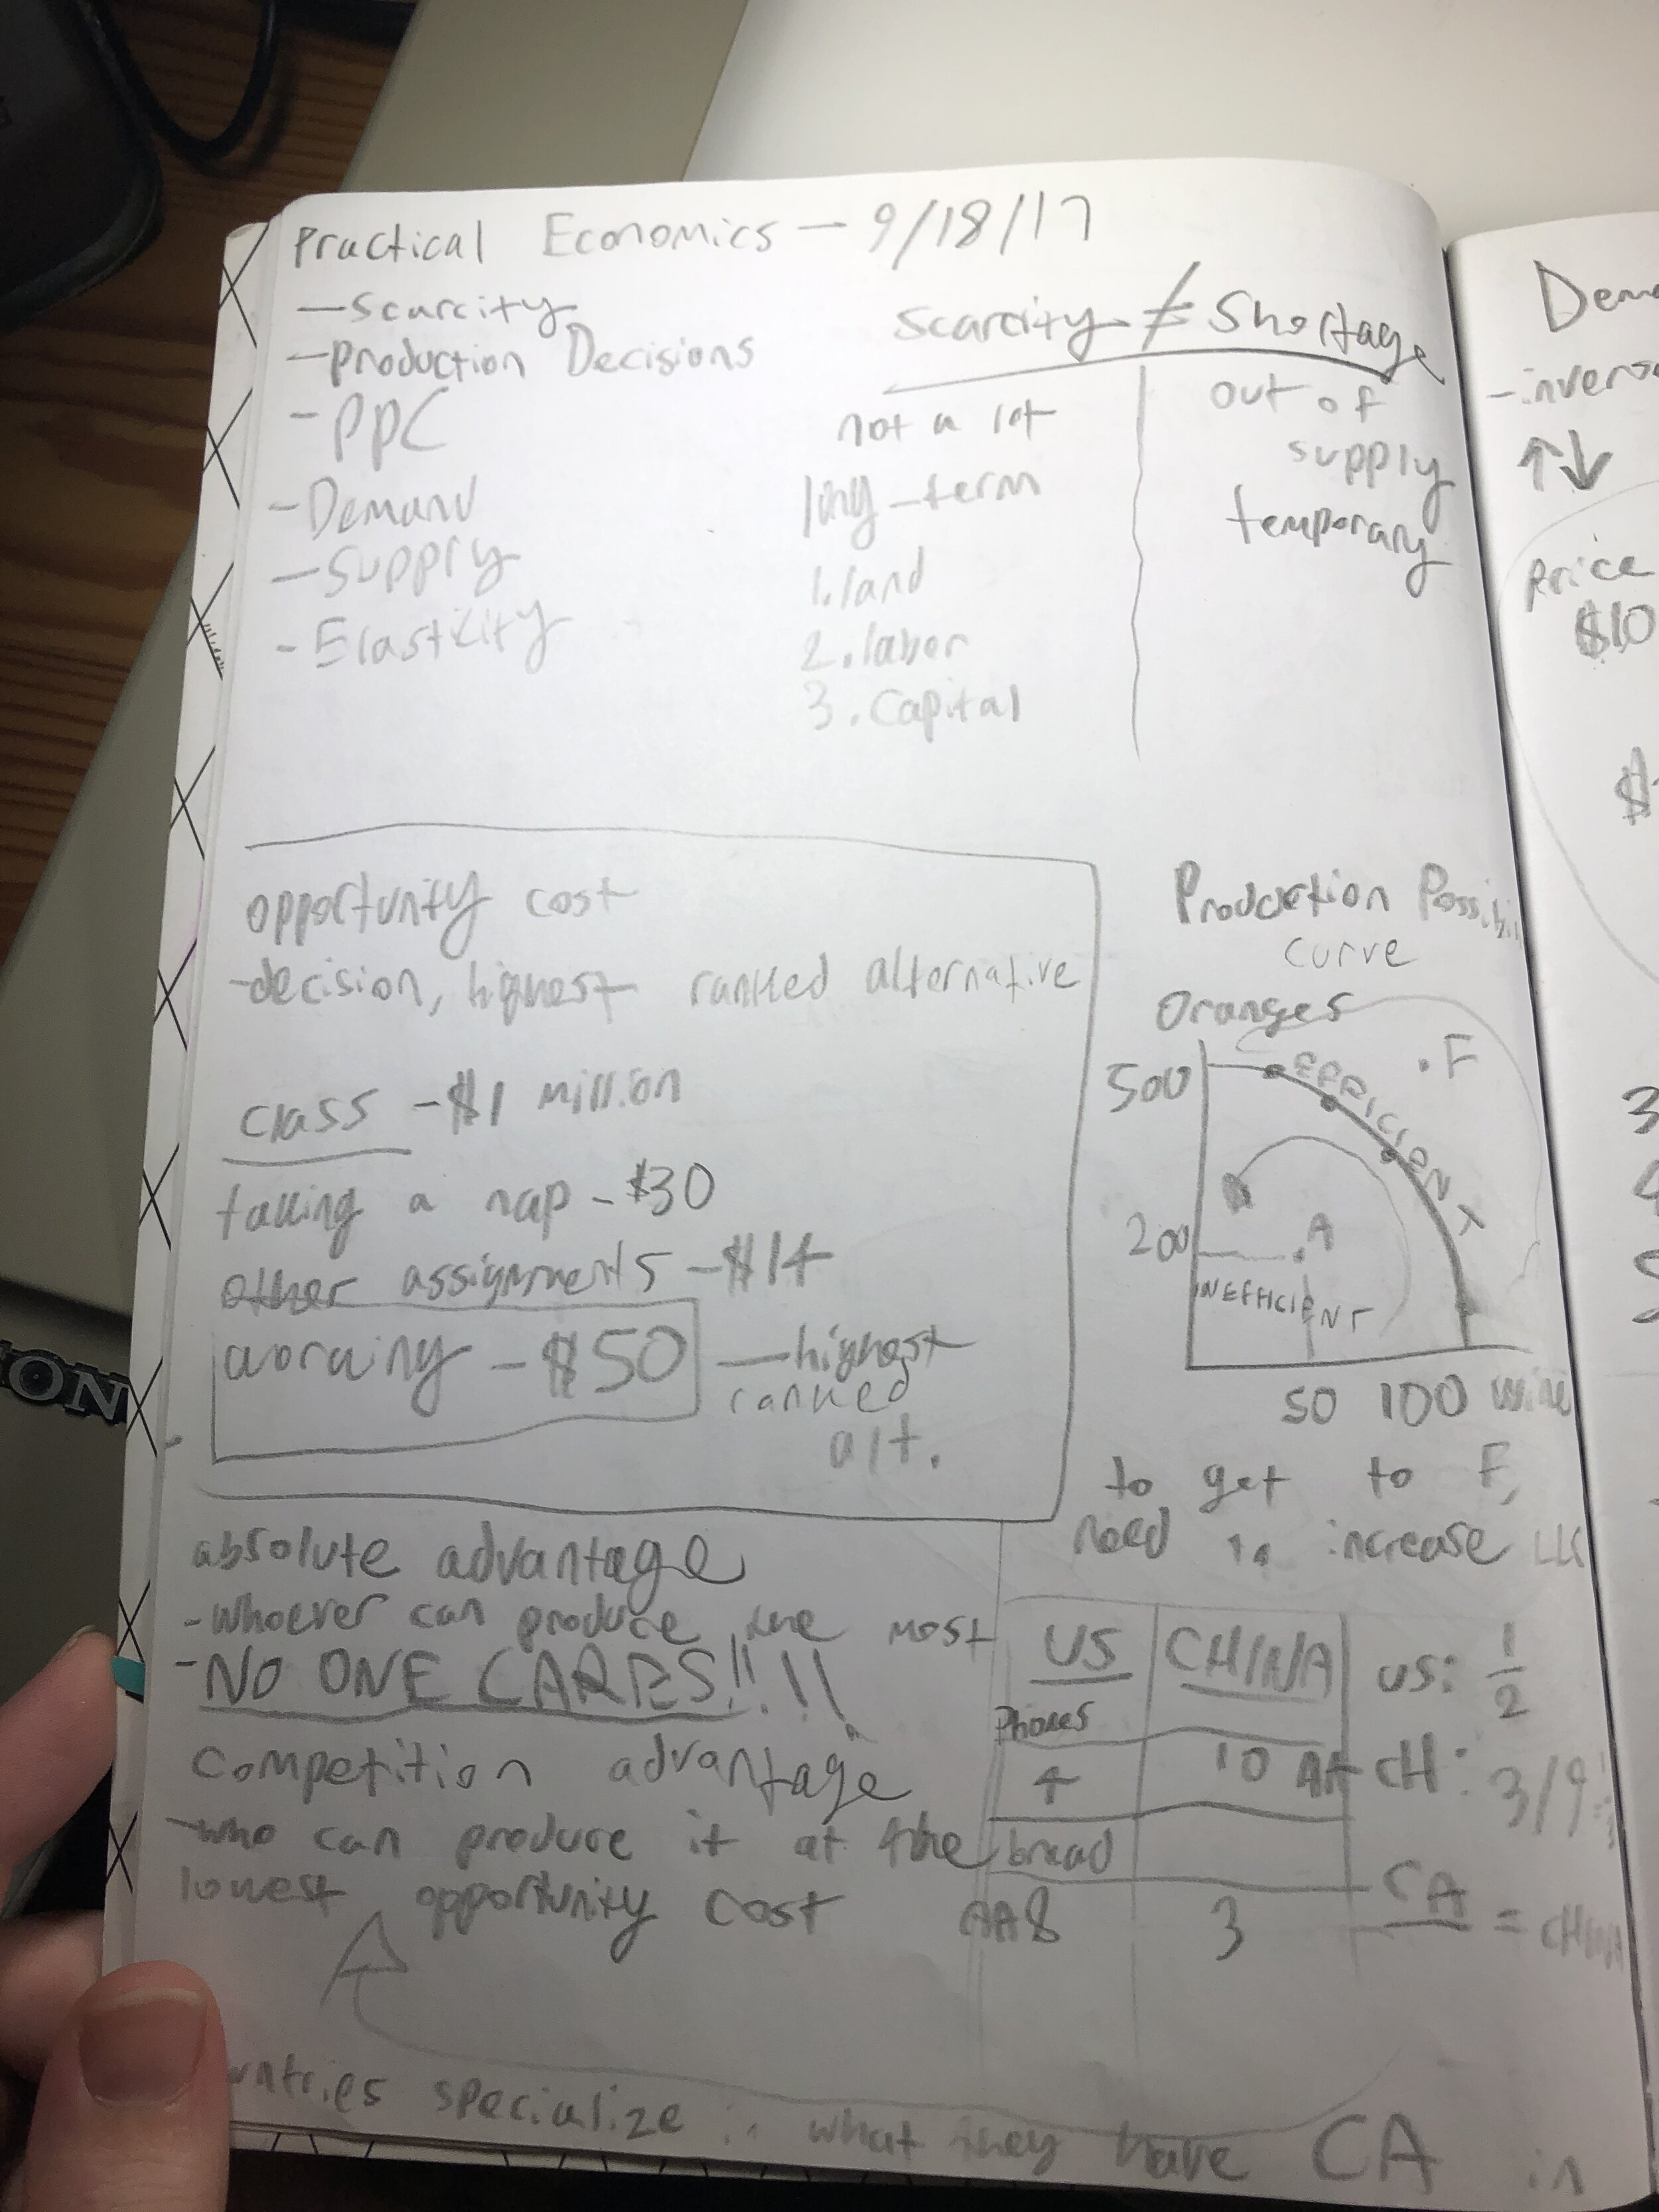 Practical Economics — 9/18/17
- Scarcity
- Production Decisions
- PPC
- Demand
- Supply
- Elasticity
Scarcity ≠ Shortage
not a lot
long-term
1. land
2. labor
3. Capital
out of
supply
temporary
opportunity cost
- decision, highest ranked alternative
class - $1 million
taking a nap - $30
other assignments - $14
working - $50 — highest
ranked
alt.
Production Possibi
curve
Oranges
500
EFFICIENT
. F
200
. A
INEFFICIENT
50 100 wine
to get to F,
need to increase
absolute advantage
- whoever can produce the most
- NO ONE CARES!!!!
Competition advantage
- who can produce it at the
lowest opportunity cost
US CHINA
Phones
4 10 AA
bread
AA 8 3
US: 1/2
CH: 3/9
CA = CHINA
untries specialize in what they have CA in
Dem
- invers
↑↓
Price
$10
$
3
4
5
ON